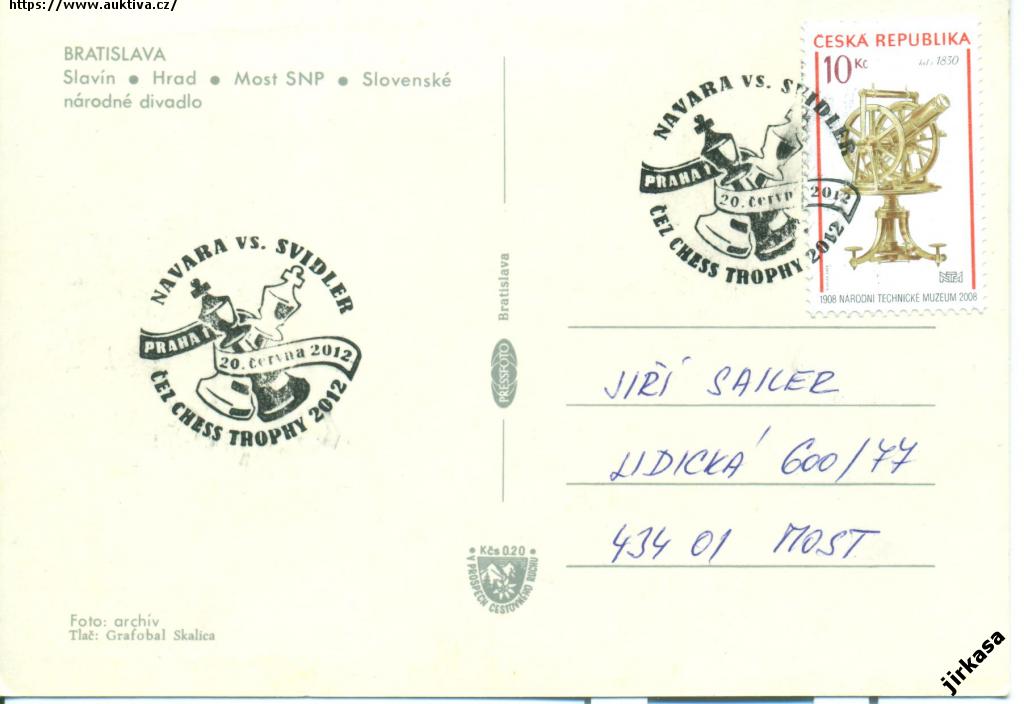 https://www.auktiva.cz/
BRATISLAVA
Slavín ● Hrad ● Most SNP ● Slovenské
národné divadlo
NAVARA VS. SVIDLER
PRAHA 1
20. června 2012
ČEZ CHESS TROPHY 2012
NAVARA VS. SVIDLER
PRAHA 1
20. červn 2012
ČEZ CHESS TROPHY 2012
ČESKÁ REPUBLIKA
10 Kč
1830
1908 NÁRODNÍ TECHNICKÉ MUZEUM 2008
NTM
Bratislava
PRESSFOTO
JIŘÍ SAILER
LIDICKÁ 600/77
434 01 MOST
Kčs 0.20
V PROSPECH CESTOVNÉHO RUCHU
Foto: archív
Tlač: Grafobal Skalica
jirkasa